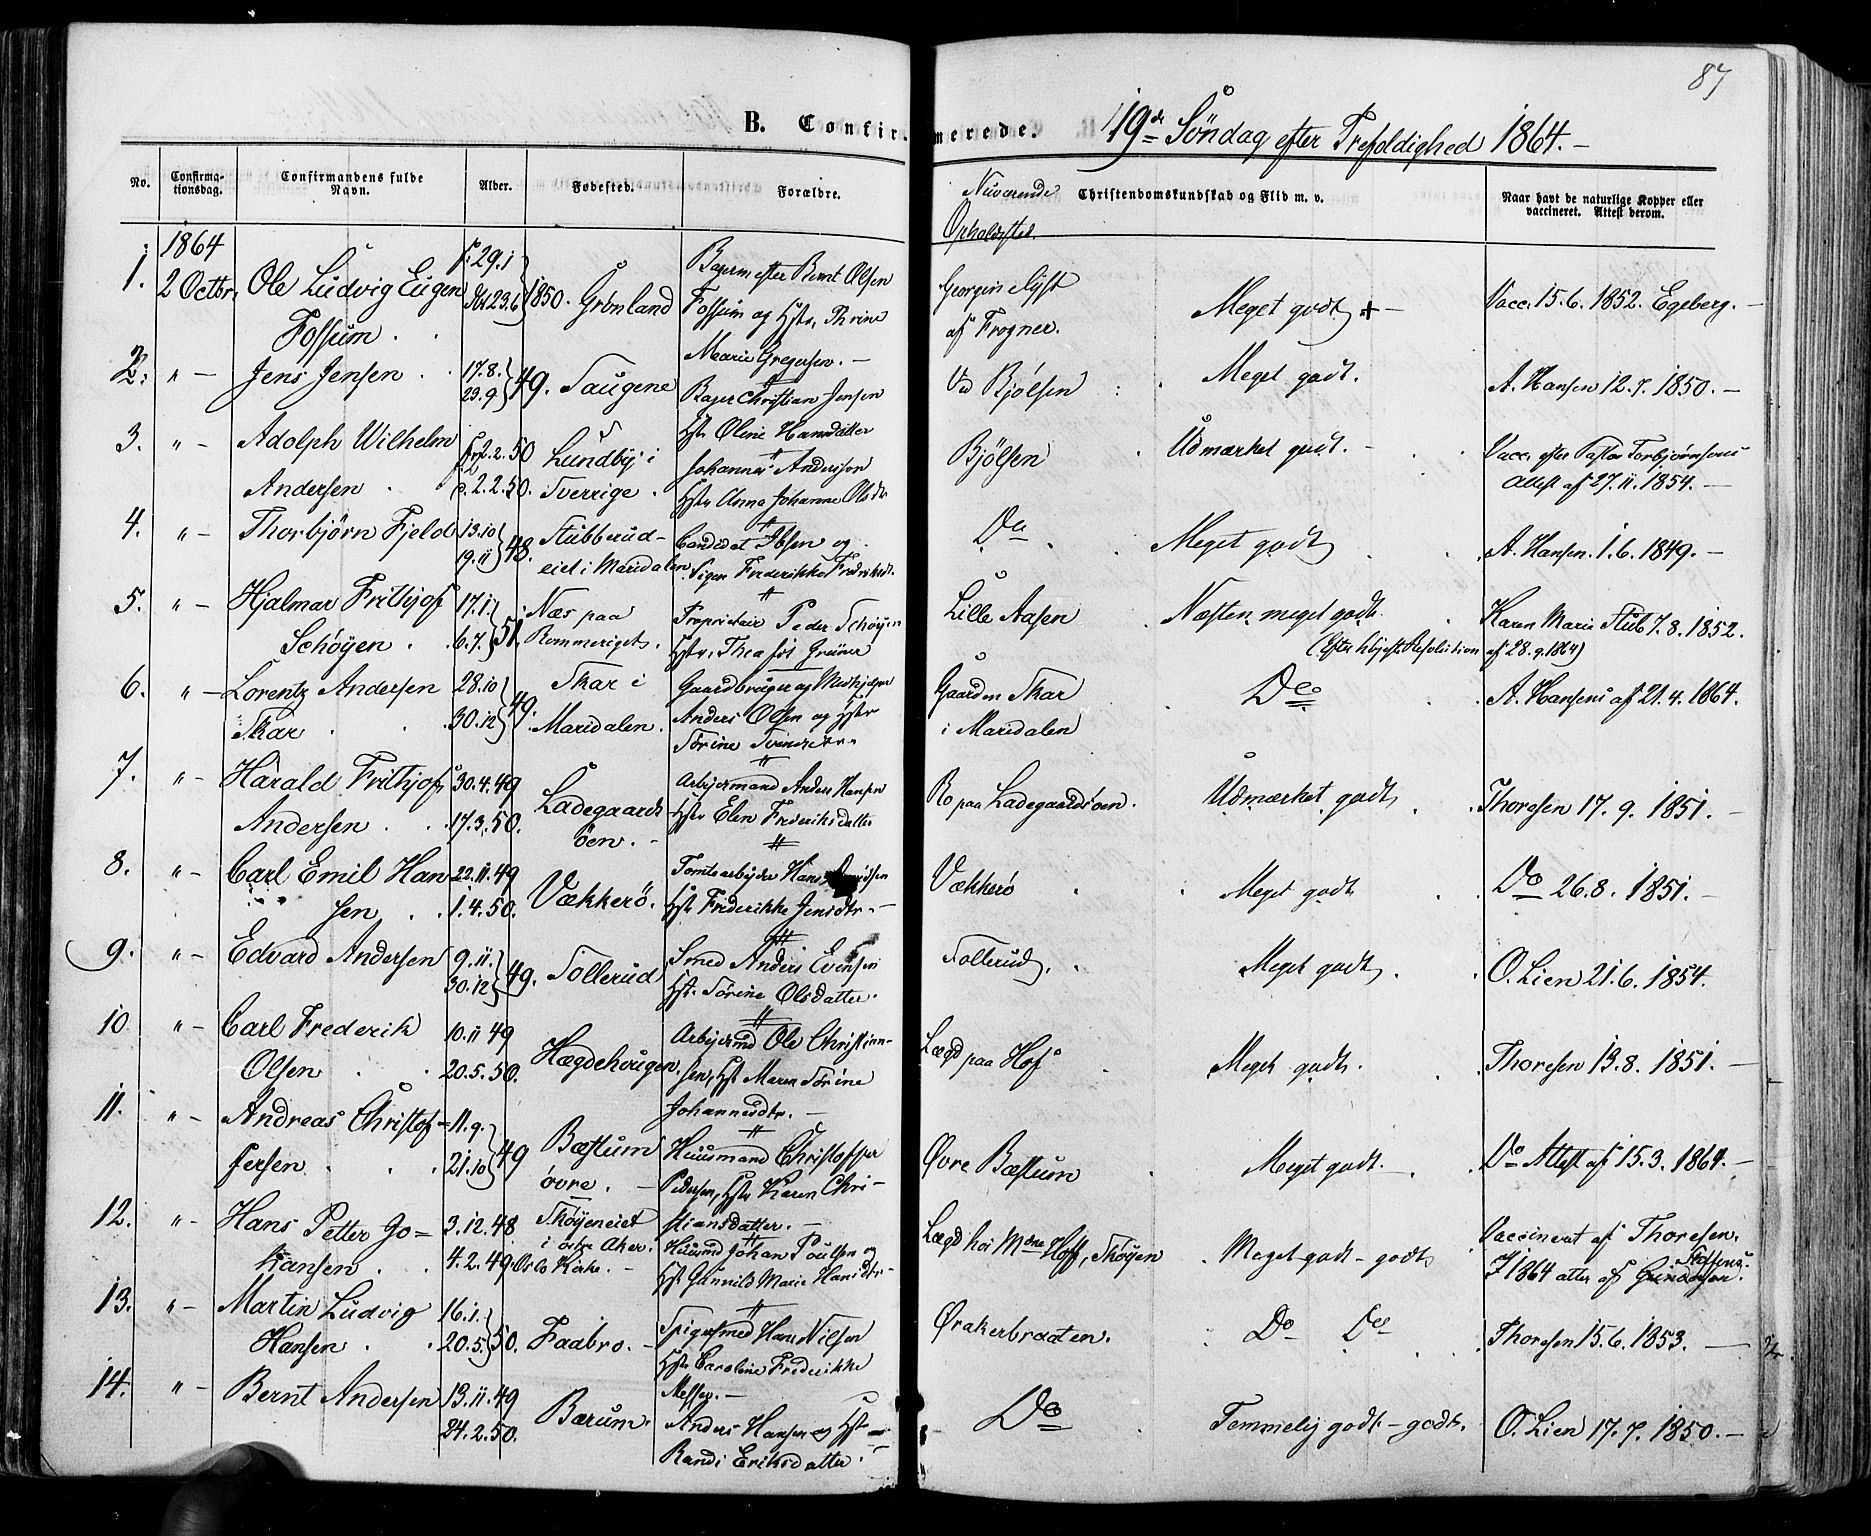 87
B. Confirmerede. 19de Söndag efter Trefoldighed 1864.
No.
Confirmationsdag.
Confirmandens fulde Navn.
Alder.
Fødested.
Forældre.
Nuværende Opholdssted.
Christendomskundskab og Flid m. v.
Naar havt de naturlige Kopper eller vaccineret. Attest derom.
1864
1. 2 Octbr. Ole Ludvig Eugen Fossum f. 29.1 dbt 23.6 1850. Grønland
Bagermester Bernt Olsen
Fossum og Hstr. Thrine
Marie Gregersen.
af Frogner.
Meget godt +
Vacc. 15.6. 1852. Egeberg.
2. " Jens Jensen 17.8. 23.9 49. Saugene
Bager Christian Jensen
Hstr Oline Hansdatter
Ved Bjølsen
Meget godt.
A. Hansen 12.7. 1850.
3. " Adolph Wilhelm Andersen 2.2.50 2.2.50. Lundby i Sverrige.
Johannes Andersson
Hstr Anna Johanne Olsdtr
Bjølsen
Udmærket godt.
Vacc. efter Pastor Torbjørnsens
Attest af 27.11.1854.
4. " Thorbjörn Fjeld 13.10 19.11 48. Stubberud-eiet i Maridalen
Candidat Ibsen og
Pigen Frederikke Fredriksdt.
Do
Meget godt
A. Hansen. 1.6. 1849.
5. " Hjalmar Frithjof Schøyen 17.1. 6.7. 51. Næs paa Rommeriget.
Proprietair Peder Schøyen
Hstr. Thea
Lille Aasen
Næsten meget godt.
(Efter høieste Resolution af 28.9.1864)
Karen Marie Stub 7.8.1852.
6. " Lorentz Andersen Skar 28.10 30.12 49. Skar i Maridalen.
Gaardbruger og Medhjelper
Anders Olsen og Hstr
Torine
Gaarden Skar
i Maridalen
Do
A. Hansens af 21.4.1864.
7. " Harald Frithjof Andersen 30.4.49 17.3.50. Ladegaardsöen.
Arbeidsmand Anders Hansen
Hstr Elen Frederiksdatter
Ro paa Ladegaardsöen.
Udmærket godt
Thoresen 17.9.1851.
8. " Carl Emil Hansen 22.11.49 1.4.50. Vækkerö.
Tomtearbeider Hans
Hstr Frederikke Jensdtr.
Vækkerö
Meget godt
Do 26.8.1851.
9. " Edvard Andersen 9.11. 30.12 49. Sollerud
Smed Anders Evensen
Hstr. Torine Olsdatter.
Sollerud,
Meget godt,
O. Lien 21.6.1854.
10 " Carl Frederik Olsen 10.11 49 20.5.50. Hægdehougen
Arbeidsmd Ole Christian-
sen, Hst Maren Torine
Johannesdtr.
Lægd paa Hof
Meget godt.
Thoresen 13.8.1851.
11. " Andreas Christoffersen 11.9. 21.10 49 Bæstum övre.
Huusmand Christoffer
Pedersen, Hstr Karen Chri-
stiansdatter.
Øvre Bæstum
Meget godt.
Do Attest af 15.3.1864.
12. " Hans Petter Johansen 3.12.48 4.2.49. Skøyeneiet i østre Aker. Oslo Kirke.
Huusmd Johan Poulsen og
Hst. Gunnild Marie Hansdtr
Lægd hos Mdme Hoff, Skøyen
Meget godt - godt
Vaccineret af Thoresen.
I 1864 atter af
13. " Martin Ludvig Hansen 16.1. 20.5. 50. Faabro.
Spigersmed Hans Nilsen
Hstr Caroline Frederikke
Messer.
Ørakerbraaten.
Do Do
Thoresen 15.6.1853.
14. " Bernt Andersen 13.11.49 24.2.50. Bærum.
Anders Hansen og Hstr
Randi Eriksdatter.
Do
Temmelig godt - godt.
O. Lien 17.7.1850.